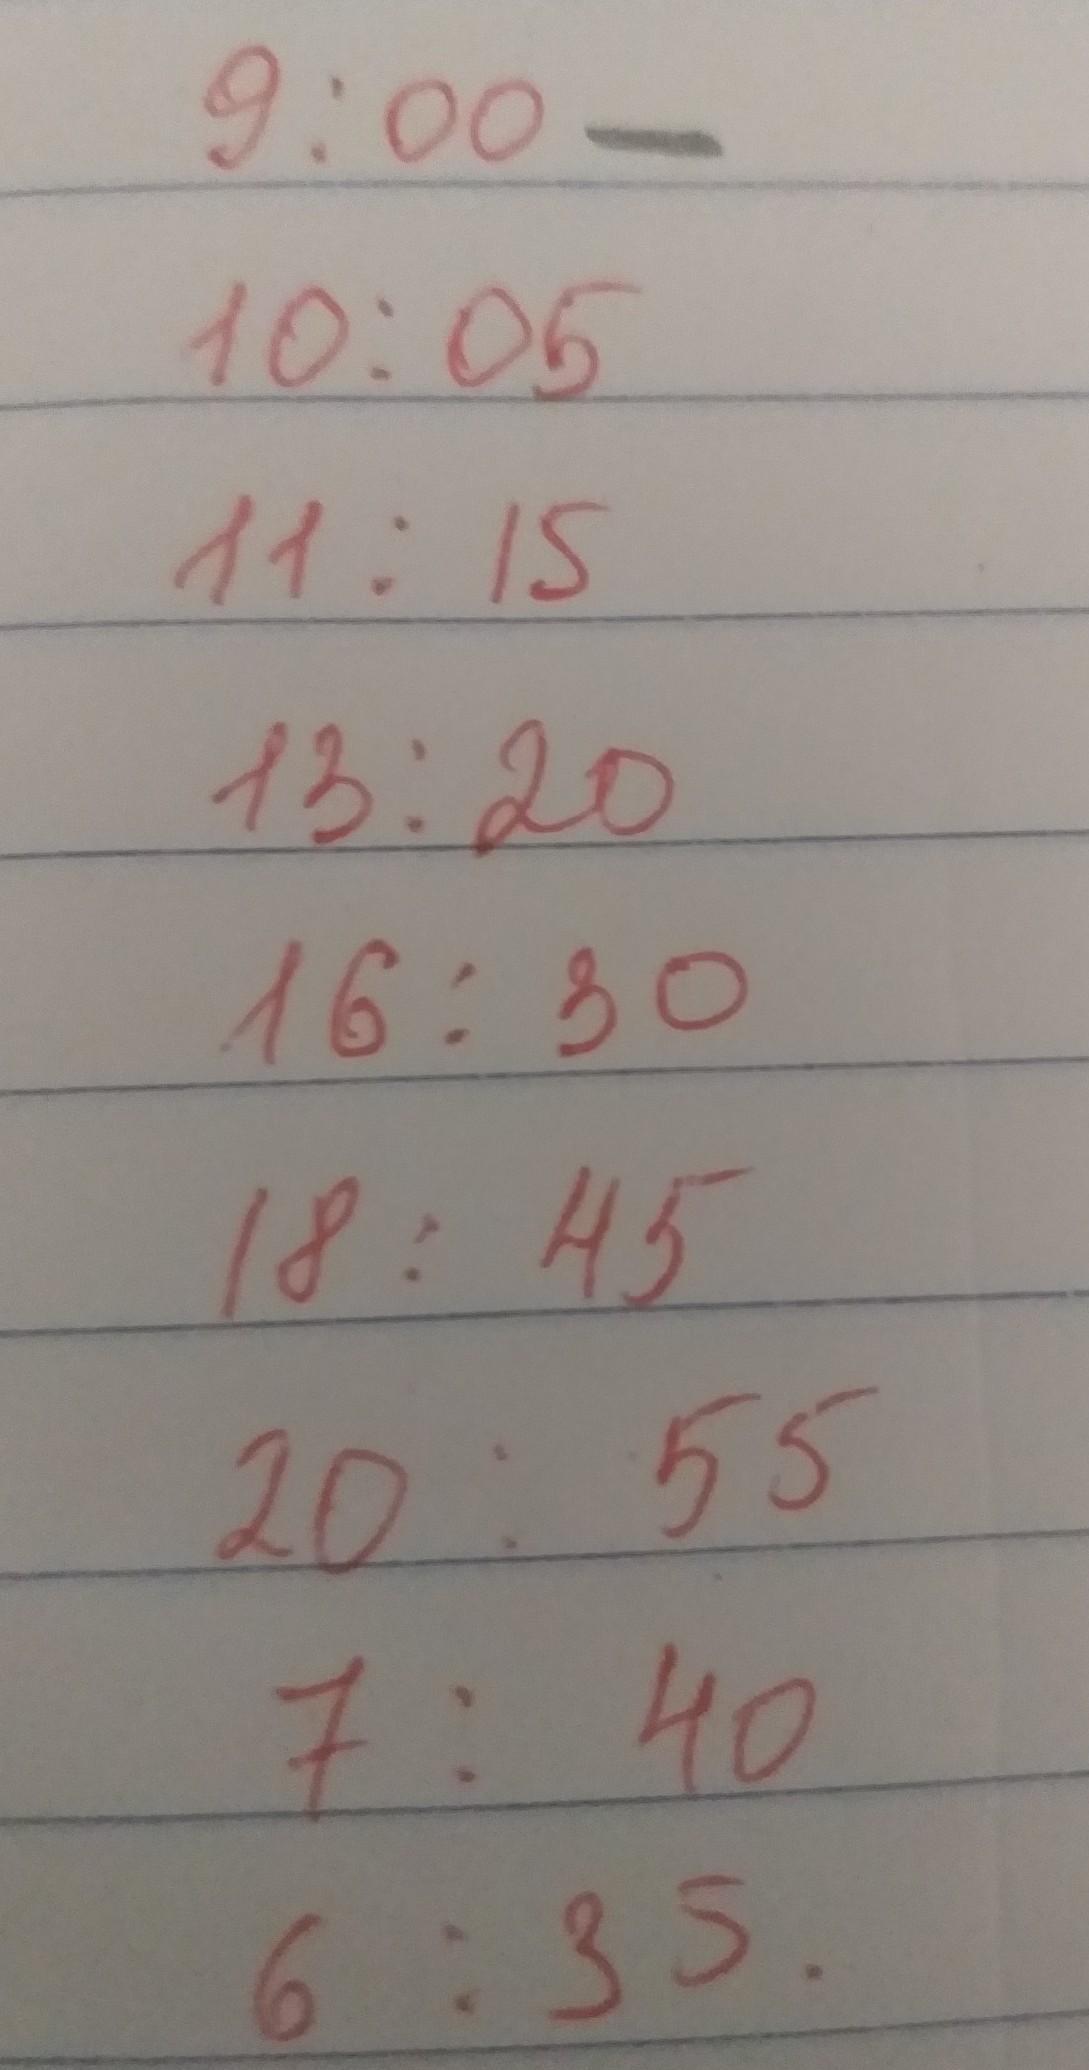 9:00 —
10:05
11:15
13:20
16:30
18:45
20:55
7:40
6:35.